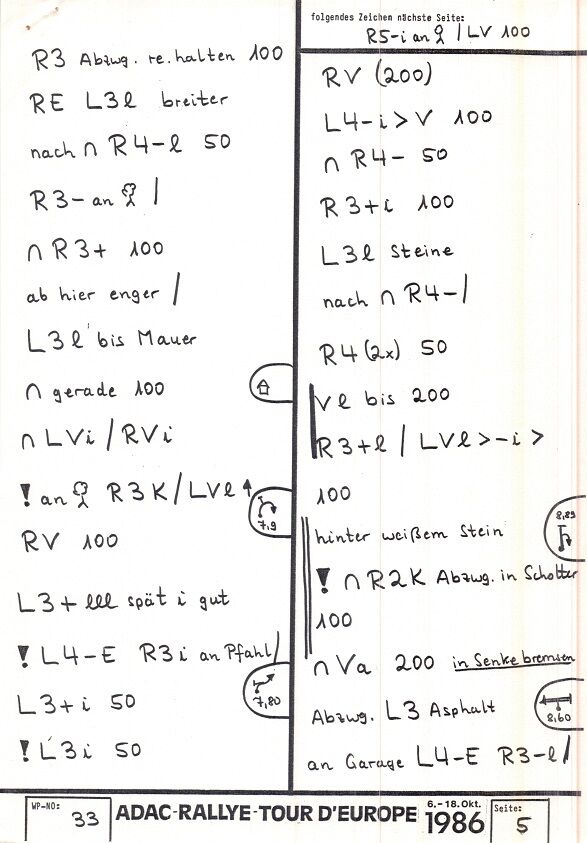 R3 Abzwg. re. halten 100
RE L3l breiter
nach ∩ R4-l 50
R3- an /
∩ R3+ 100
ab hier enger /
L3l bis Mauer
∩ gerade 100
∩ LVi / RVi
! an R3K / LVl
7,9
RV 100
L3+ lll spät i gut
! L4-E R3i an Pfahl /
L3+i 50
7,80
! L3i 50
folgendes Zeichen nächste Seite:
R5-i an / LV 100
RV (200)
L4-i > V 100
∩ R4- 50
R3+i 100
L3l Steine
nach ∩ R4- /
R4 (2x) 50
Vl bis 200
R3+l / LVl >-i >
100
8,89
hinter weißem Stein
! ∩ R2K Abzwg. in Schotter
100
∩ Va 200 in Senke bremsen
Abzwg. L3 Asphalt
8,60
an Garage L4-E R3-l /
WP-NO: 33
ADAC-RALLYE-TOUR D'EUROPE
6.-18.Okt.
1986
Seite: 5